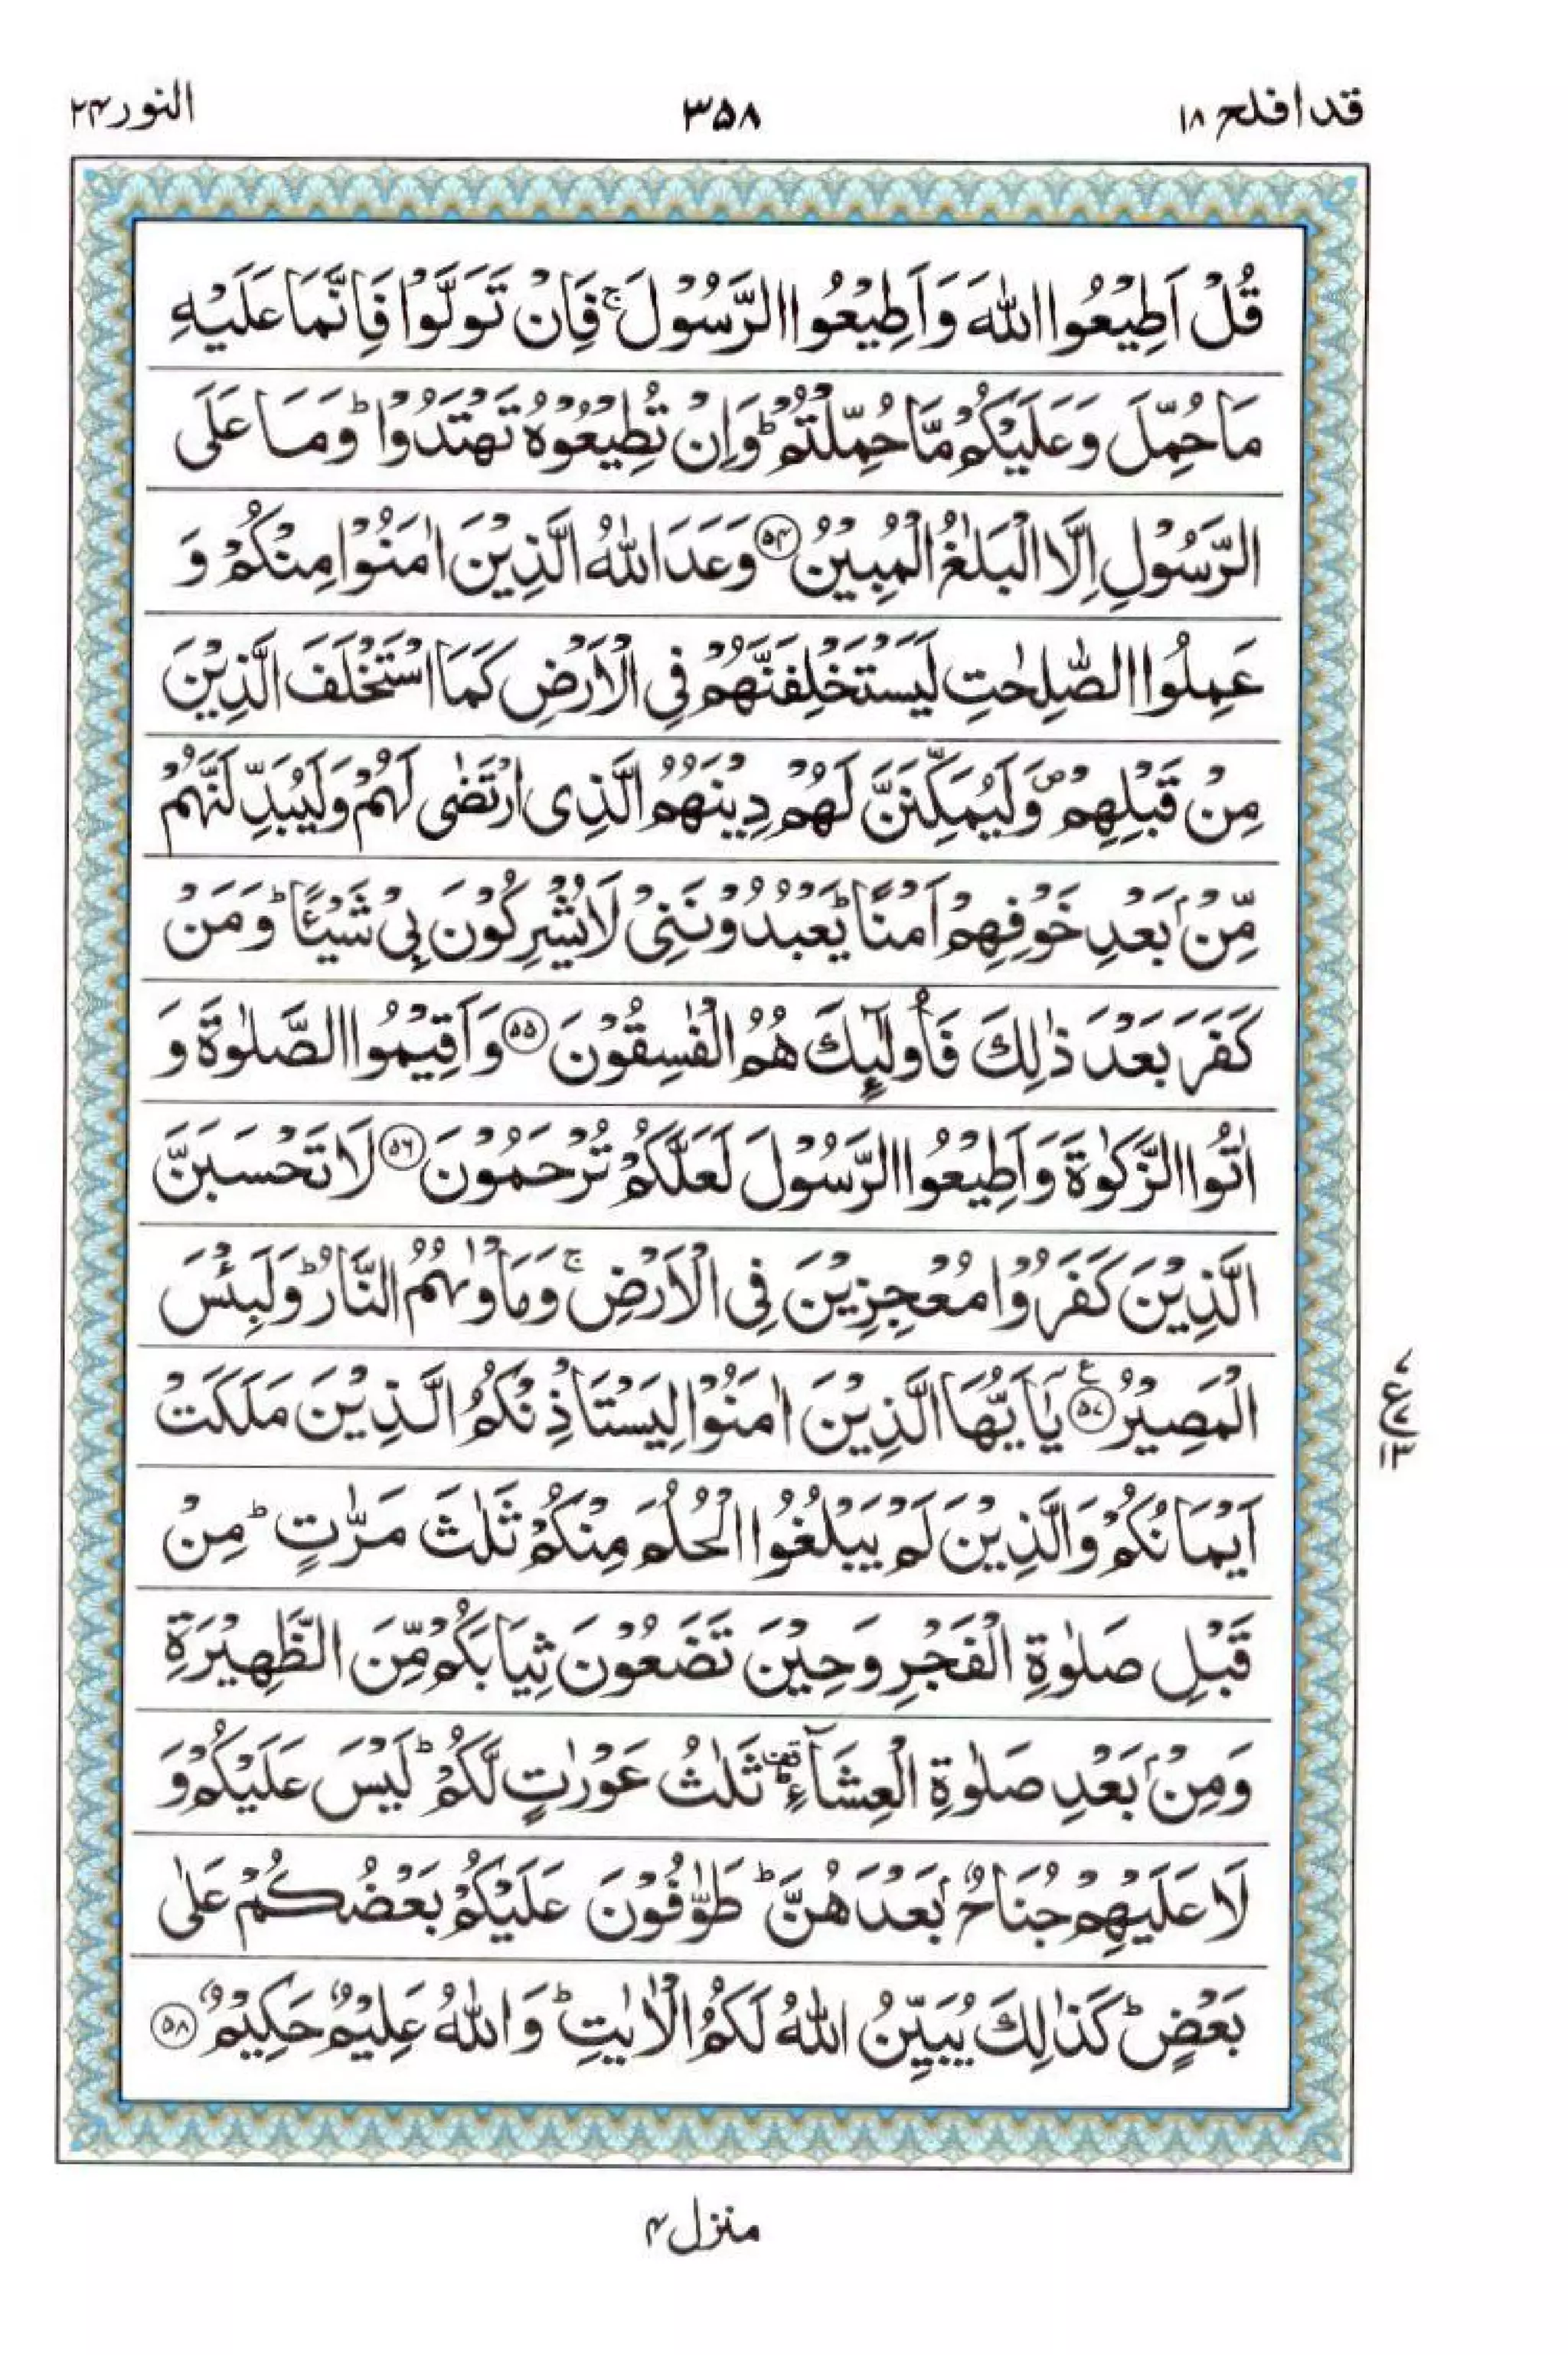 قد افلح ۱۸ ۳۵۸ النور ۲۴
قُلْ اَطِیْعُوا اللّٰهَ وَ اَطِیْعُوا الرَّسُوْلَ ۚ فَاِنْ تَوَلَّوْا فَاِنَّمَا عَلَیْهِ
مَا حُمِّلَ وَ عَلَیْكُمْ مَّا حُمِّلْتُمْ ؕ وَ اِنْ تُطِیْعُوْهُ تَهْتَدُوْا ؕ وَ مَا عَلَی
الرَّسُوْلِ اِلَّا الْبَلٰغُ الْمُبِیْنُ ﴿۵۴﴾ وَعَدَ اللّٰهُ الَّذِیْنَ اٰمَنُوْا مِنْكُمْ وَ
عَمِلُوا الصّٰلِحٰتِ لَیَسْتَخْلِفَنَّهُمْ فِی الْاَرْضِ كَمَا اسْتَخْلَفَ الَّذِیْنَ
مِنْ قَبْلِهِمْ ۪ وَ لَیُمَكِّنَنَّ لَهُمْ دِیْنَهُمُ الَّذِی ارْتَضٰی لَهُمْ وَ لَیُبَدِّلَنَّهُمْ
مِّنْۢ بَعْدِ خَوْفِهِمْ اَمْنًا ؕ یَعْبُدُوْنَنِیْ لَا یُشْرِكُوْنَ بِیْ شَیْئًا ؕ وَ مَنْ
كَفَرَ بَعْدَ ذٰلِكَ فَاُولٰٓئِكَ هُمُ الْفٰسِقُوْنَ ﴿۵۵﴾ وَ اَقِیْمُوا الصَّلٰوةَ وَ
اٰتُوا الزَّكٰوةَ وَ اَطِیْعُوا الرَّسُوْلَ لَعَلَّكُمْ تُرْحَمُوْنَ ﴿۵۶﴾ لَا تَحْسَبَنَّ
الَّذِیْنَ كَفَرُوْا مُعْجِزِیْنَ فِی الْاَرْضِ ۚ وَ مَاْوٰىهُمُ النَّارُ ؕ وَ لَبِئْسَ
الْمَصِیْرُ ﴿۵۷﴾ ع یٰۤاَیُّهَا الَّذِیْنَ اٰمَنُوْا لِیَسْتَاْذِنْكُمُ الَّذِیْنَ مَلَكَتْ
ع ۷ ۱۳
اَیْمَانُكُمْ وَ الَّذِیْنَ لَمْ یَبْلُغُوا الْحُلُمَ مِنْكُمْ ثَلٰثَ مَرّٰتٍ ؕ مِنْ
قَبْلِ صَلٰوةِ الْفَجْرِ وَ حِیْنَ تَضَعُوْنَ ثِیَابَكُمْ مِّنَ الظَّهِیْرَةِ
وَ مِنْۢ بَعْدِ صَلٰوةِ الْعِشَآءِ ۫ؕ ثَلٰثُ عَوْرٰتٍ لَّكُمْ ؕ لَیْسَ عَلَیْكُمْ وَ
لَا عَلَیْهِمْ جُنَاحٌۢ بَعْدَهُنَّ ؕ طَوّٰفُوْنَ عَلَیْكُمْ بَعْضُكُمْ عَلٰی
بَعْضٍ ؕ كَذٰلِكَ یُبَیِّنُ اللّٰهُ لَكُمُ الْاٰیٰتِ ؕ وَ اللّٰهُ عَلِیْمٌ حَكِیْمٌ ﴿۵۸﴾
منزل ۴